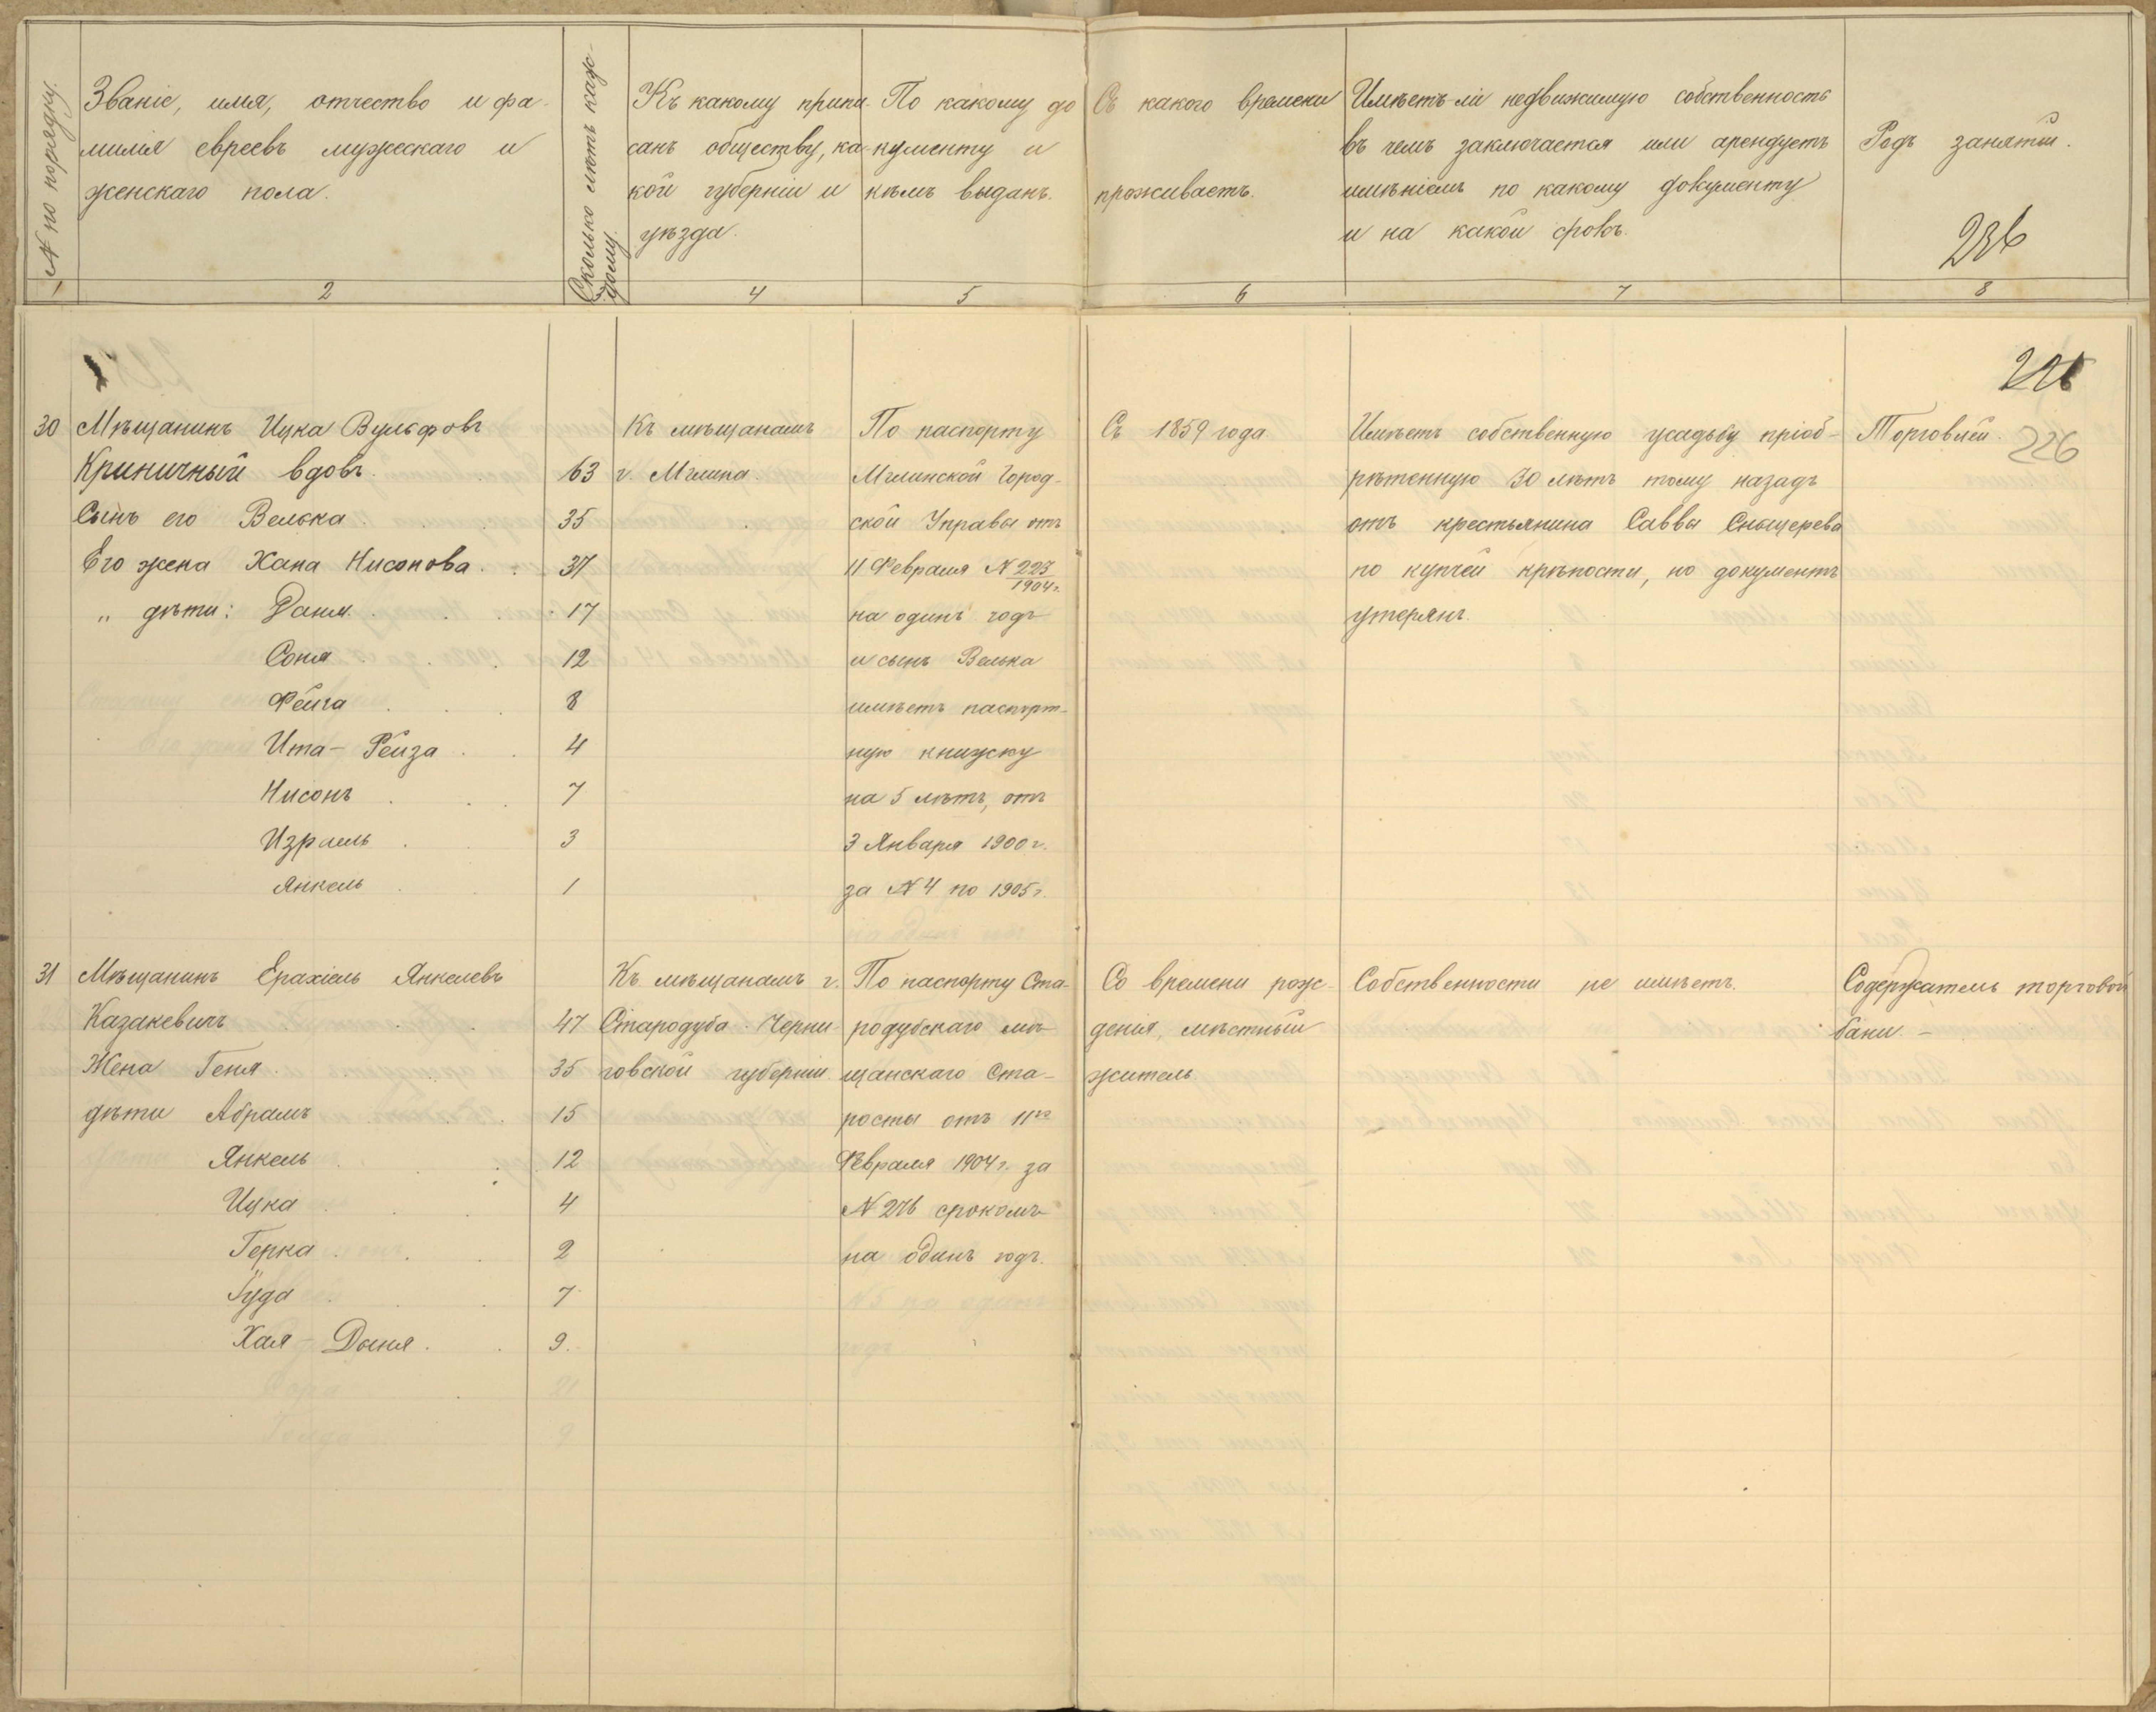 № по порядку.
Званіе, имя, отчество и фа-
милія евреевъ мужескаго и
женскаго пола.
Сколько лѣтъ каж-
дому.
Къ какому припи-
санъ обществу, ка-
кой губерніи и
уѣзда.
По какому до
кументу и
кѣмъ выданъ.
Съ какого времени
проживаетъ.
Имѣетъ-ли недвижимую собственность
въ чемъ заключается или арендуетъ
имѣніемъ по какому документу
и на какой срокъ.
Родъ занятій.
236
1 2 4 5 6 7 8
226
30 Мѣщанинъ Ицка Вульфовъ
Криничный вдовъ. 63
Сынъ его Велька 35
Его жена Хана Нисонова 37
„ дѣти: Даня 17
Соня 12
Фейга 8
Ита-Рейза 4
Нисонъ 7
Израиль 3
Янкель 1
Къ мѣщанамъ
г. Мглина.
По паспорту
Мглинской Город-
ской Управы отъ
11 Февраля N 223
1904 г.
на одинъ годъ
и сынъ Велька
имѣетъ паспорт-
ную книжку
на 5 лѣтъ, отъ
3 Января 1900 г.
за N 4 по 1905 г.
Съ 1859 года
Имѣетъ собственную усадьбу пріоб-
рѣтенную 30 лѣтъ тому назадъ
отъ крестьянина Саввы
по купчей крѣпости, но документъ
утерянъ.
Торговлей.
226
31 Мѣщанинъ Ерахіель Янкелевъ
Казакевичъ 47
Жена Геня 35
дѣти Абрамъ 15
Янкель 12
Ицка 4
Герка 2
Гуда 7
Хая-Дыня 9
Къ мѣщанамъ г.
Стародуба Черни-
говской губерніи
По паспорту Ста-
родубскаго мѣ-
щанскаго Ста-
росты отъ 11го
Февраля 1904 г. за
N 276 срокомъ
на одинъ годъ.
Со времени рож-
денія, мѣстный
житель.
Собственности не имѣетъ.
Содержатель торговой
бани. —